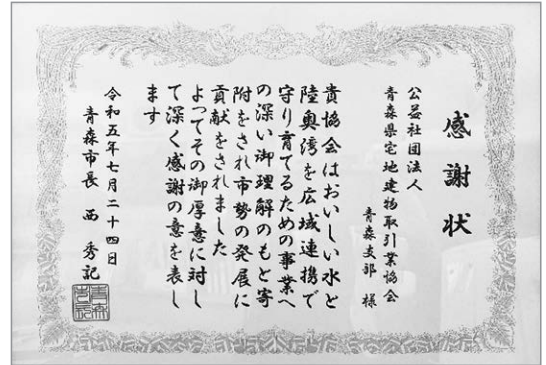 感謝状
公益社団法人
青森県宅地建物取引業協会
青森支部 様
貴協会はおいしい水と
陸奥湾を広域連携で
守り育てるための事業へ
の深い御理解のもと寄
附をされ市勢の発展に
貢献をされました
よってその御厚意に対し
て深く感謝の意を表し
ます
令和五年七月二十四日
青森市長 西 秀記